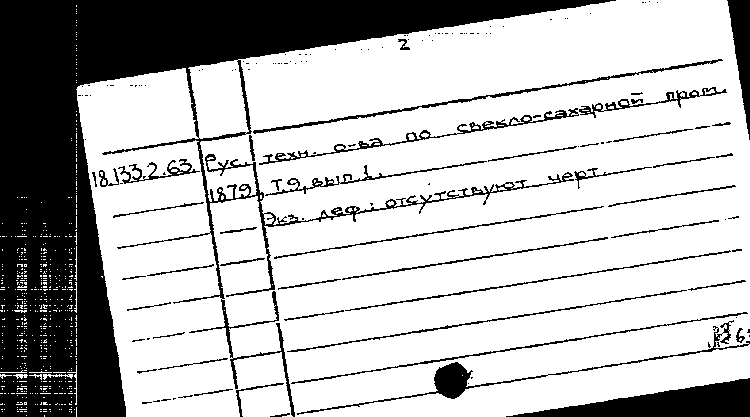 2
18.133.2.63. Рус. техн. о-ва по свекло-сахарной пром.
1879, Т.9, вып.1.
Экз. деф.: отсутствуют черт.